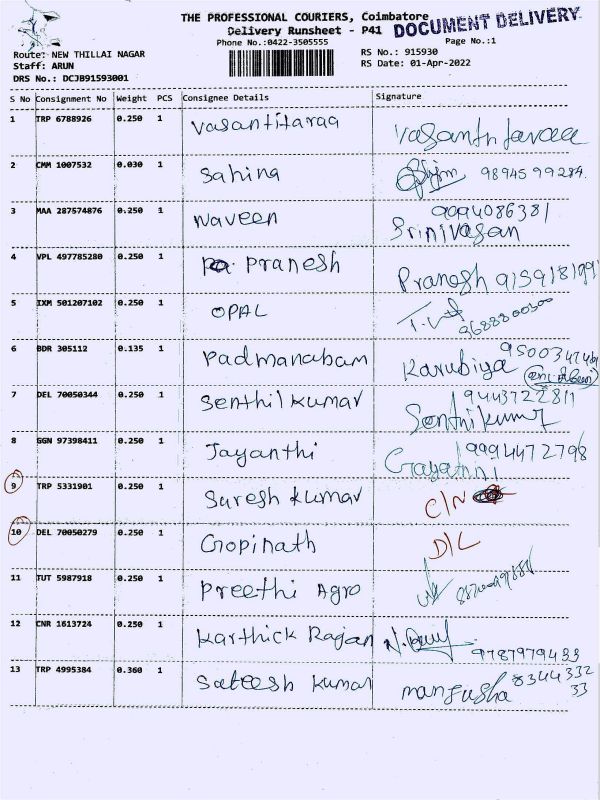 THE PROFESSIONAL COURIERS, Coimbatore
DOCUMENT DELIVERY
Delivery Runsheet - P41
Phone No.:0422-3505555
Page No.:1
Route: NEW THILLAI NAGAR
RS No.: 915930
Staff: ARUN
RS Date: 01-Apr-2022
DRS No.: DCJB91593001
S No Consignment No Weight PCS Consignee Details Signature
1 TRP 6788926 0.250 1 Vasantitaraa Vasanthtaraa
2 CMM 1007532 0.030 1 Sahina 9894599284
3 MAA 287574876 0.250 1 Naveen 9094086381
Srinivasan
4 VPL 497785280 0.250 1 Pranesh Pranesh
5 IXM 501207102 0.250 1 OPAL 9688800300
6 BDR 305112 0.135 1 Padmanabam Karubiya
7 DEL 70050344 0.250 1 Senthilkumar 9443722811
Senthikumr
8 GGN 97398411 0.250 1 Jayanthi 9994472798
Gayathri
9 TRP 5331901 0.250 1 Suresh Kumar C/N
10 DEL 70050279 0.250 1 Gopinath D/L
11 TUT 5987918 0.250 1 Preethi Agro
12 CNR 1613724 0.250 1 Karthick Rajan 9787979433
13 TRP 4995384 0.360 1 Sateesh Kumar manjusha 8344332
33